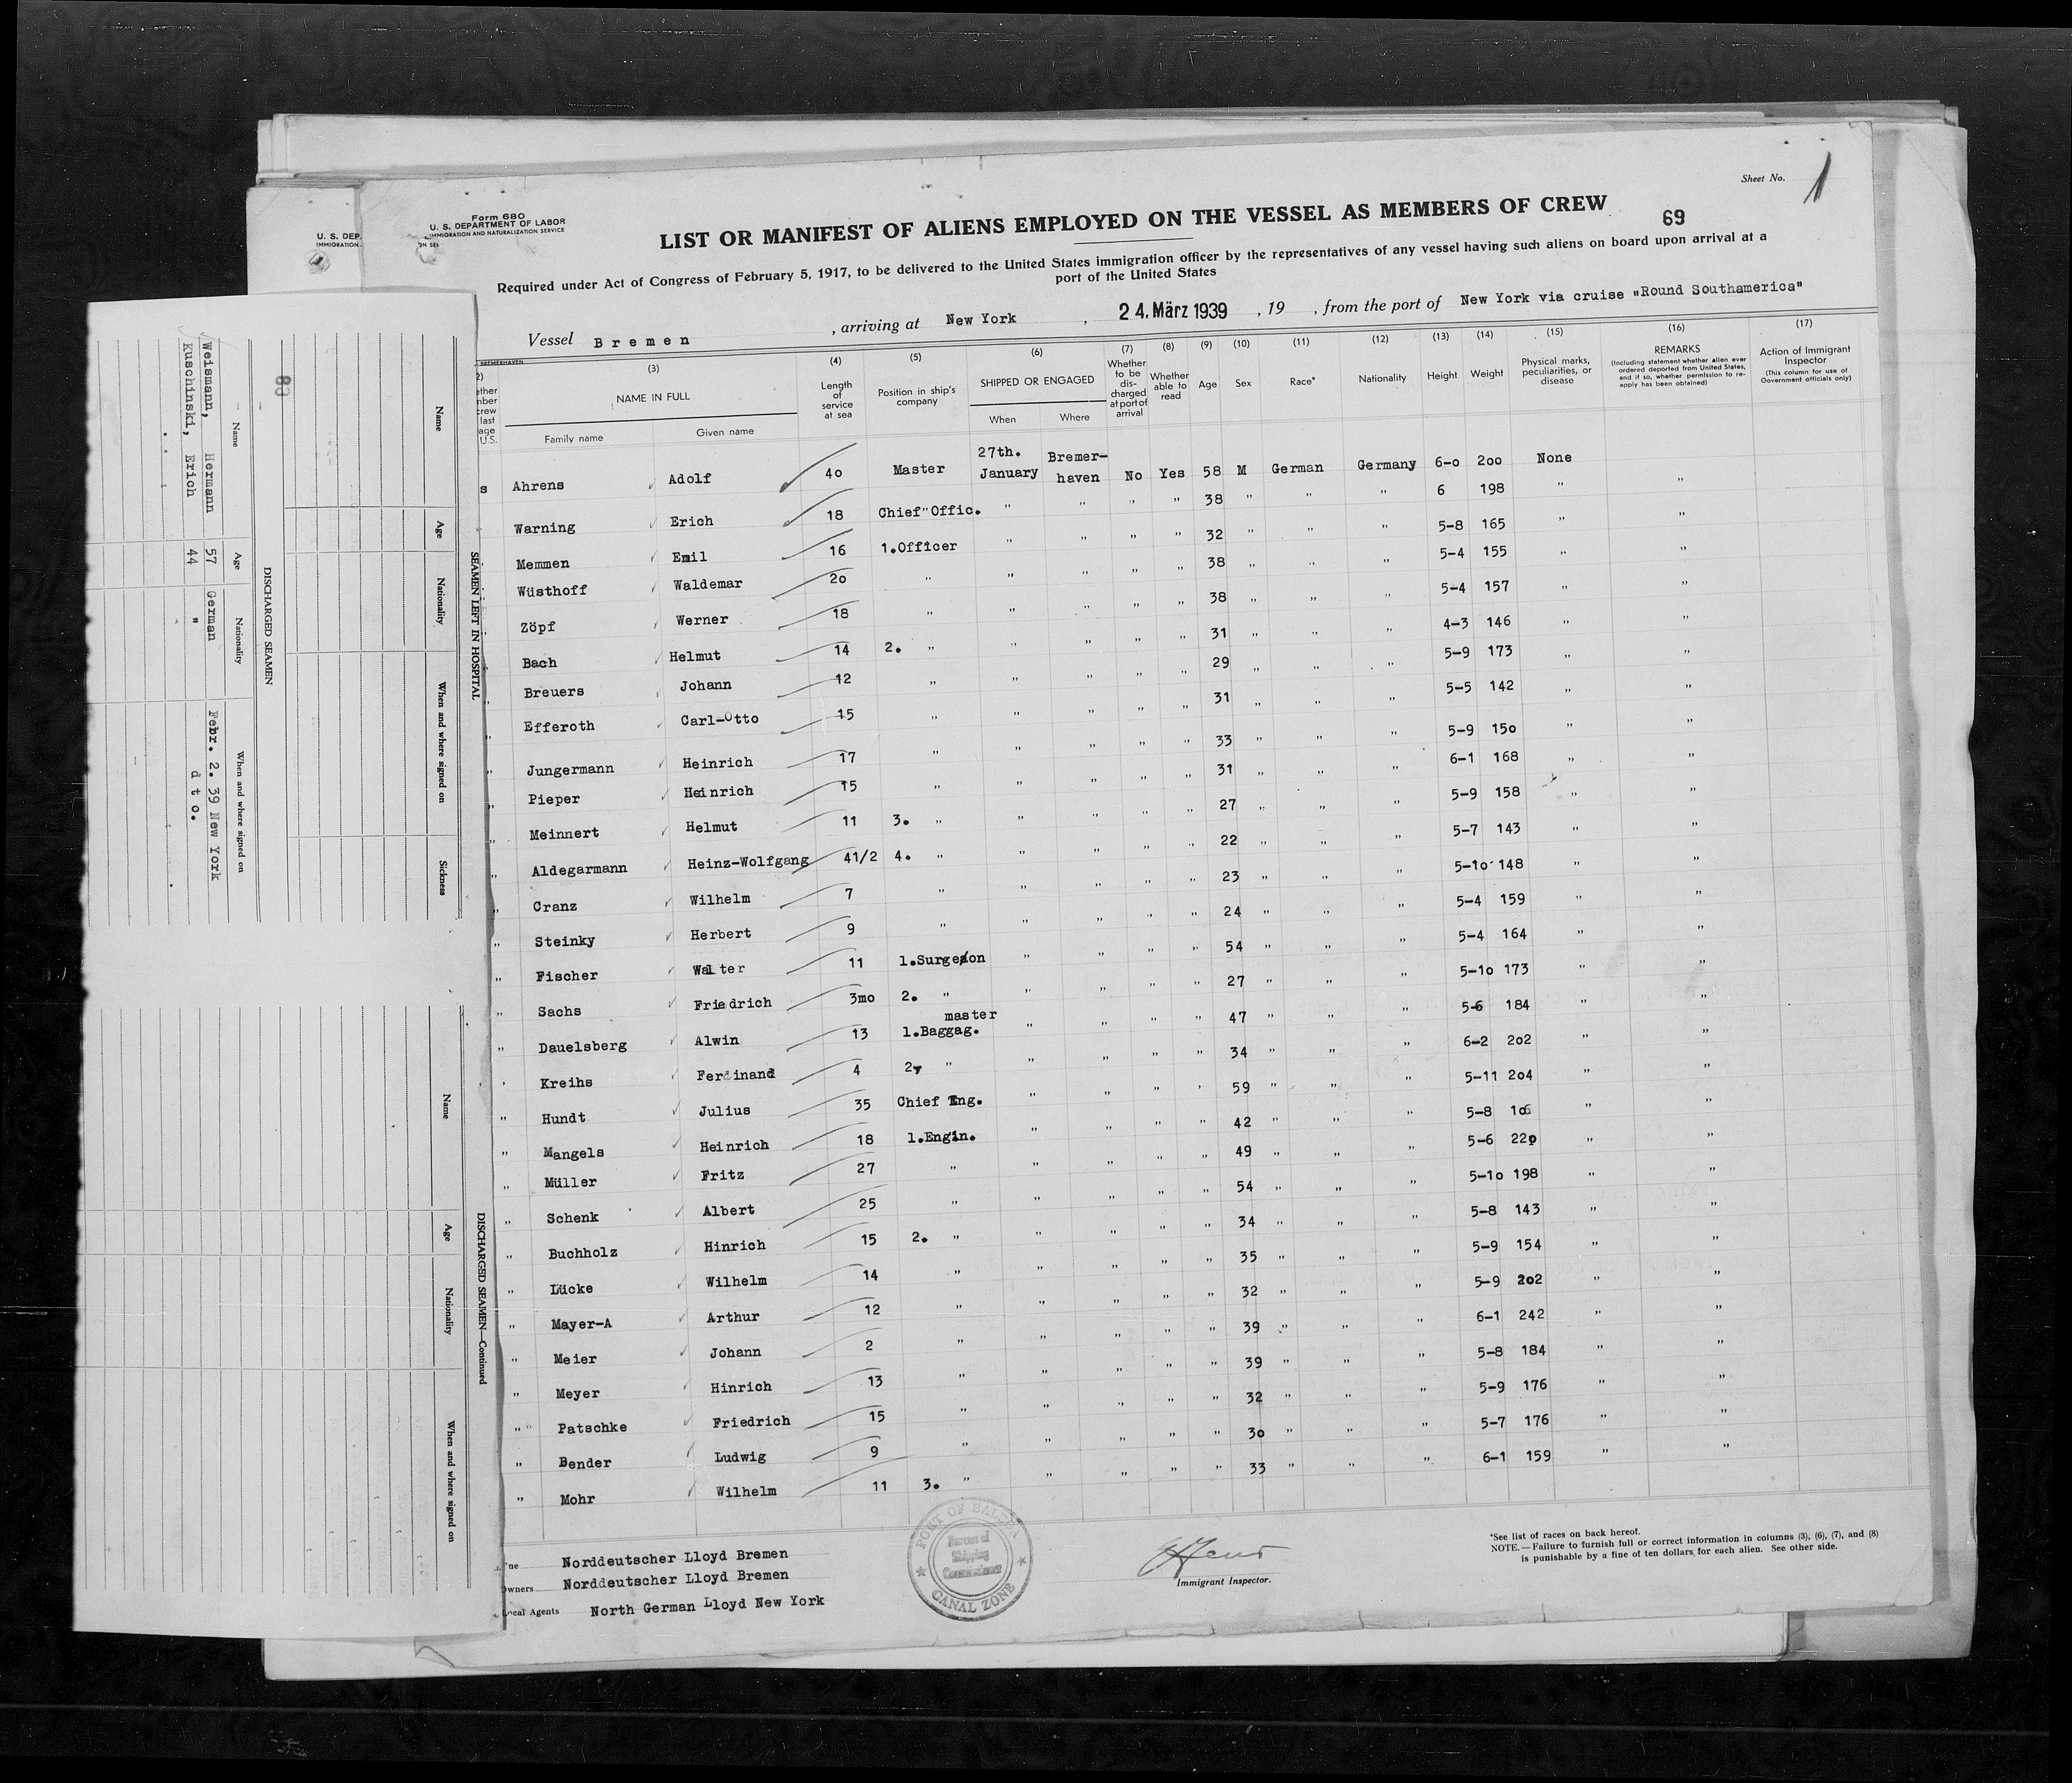 Sheet No. 1
Form 680
U. S. DEPARTMENT OF LABOR
IMMIGRATION AND NATURALIZATION SERVICE
U. S. DEP.
IMMIGRATION
LIST OR MANIFEST OF ALIENS EMPLOYED ON THE VESSEL AS MEMBERS OF CREW
69
Required under Act of Congress of February 5, 1917, to be delivered to the United States immigration officer by the representatives of any vessel having such aliens on board upon arrival at a
port of the United States
Vessel Bremen , arriving at New York , 24. März 1939 , 19 , from the port of New York via cruise "Round Southamerica"
(3) (4) (5) (6) (7) (8) (9) (10) (11) (12) (13) (14) (15) (16) (17)
NAME IN FULL
Family name Given name
Length of service at sea
Position in ship's company
SHIPPED OR ENGAGED
When Where
Whether to be discharged at port of arrival
Whether able to read
Age
Sex
Race*
Nationality
Height
Weight
Physical marks, peculiarities, or disease
REMARKS
(Including statement whether alien ever ordered deported from United States, and if so, whether permission to reapply has been obtained)
Action of Immigrant Inspector
(This column for use of Government officials only)
s Ahrens Adolf 4o Master 27th. January Bremerhaven No Yes 58 M German Germany 6-o 2oo None
Warning Erich 18 Chief Offic. " " " " 38 " " " 6 198 " "
Memmen Emil 16 1.Officer " " " " 32 " " " 5-8 165 " "
Wüsthoff Waldemar 2o " " " " " 38 " " " 5-4 155 " "
Zöpf Werner 18 " " " " " 38 " " " 5-4 157 " "
Bach Helmut 14 2. " " " " " 31 " " " 4-3 146 " "
Breuers Johann 12 " " " " " 29 " " " 5-9 173 " "
Efferoth Carl-Otto 15 " " " " " 31 " " " 5-5 142 " "
" Jungermann Heinrich 17 " " " " " 33 " " " 5-9 15o " "
" Pieper Heinrich 15 " " " " " 31 " " " 6-1 168 " "
" Meinnert Helmut 11 3. " " " " " 27 " " " 5-9 158 " "
" Aldegarmann Heinz-Wolfgang 41/2 4. " " " " " 22 " " " 5-7 143 " "
" Cranz Wilhelm 7 " " " " " 23 " " " 5-1o 148 " "
" Steinky Herbert 9 " " " " " 24 " " " 5-4 159 " "
" Fischer Walter 11 1.Surgeon " " " " 54 " " " 5-4 164 " "
" Sachs Friedrich 3mo 2. " " " " " 27 " " " 5-1o 173 " "
" Dauelsberg Alwin 13 1.Baggag. master " " " " 47 " " " 5-6 184 " "
" Kreihs Ferdinand 4 2. " " " " " 34 " " " 6-2 2o2 " "
" Hundt Julius 35 Chief Eng. " " " " 59 " " " 5-11 2o4 " "
" Mangels Heinrich 18 1.Engin. " " " " 42 " " " 5-8 " "
" Müller Fritz 27 " " " " " 49 " " " 5-6 22o " "
" Schenk Albert 25 " " " " " 54 " " " 5-1o 198 " "
" Buchholz Hinrich 15 2. " " " " " 34 " " " 5-8 143 " "
" Lücke Wilhelm 14 " " " " " 35 " " " 5-9 154 " "
" Mayer-A Arthur 12 " " " " " 32 " " " 5-9 2o2 " "
" Meier Johann 2 " " " " " 39 " " " 6-1 242 " "
" Meyer Hinrich 13 " " " " " 39 " " " 5-8 184 " "
" Patschke Friedrich 15 " " " " " 32 " " " 5-9 176 " "
" Bender Ludwig 9 " " " " " 3o " " " 5-7 176 " "
" Mohr Wilhelm 11 3. " " " " " 33 " " " 6-1 159 " "
Norddeutscher Lloyd Bremen
Owners Norddeutscher Lloyd Bremen
Local Agents North German Lloyd New York
PORT OF BALBOA
Bureau of
Shipping
Commissioner
CANAL ZONE
Immigrant Inspector.
*See list of races on back hereof.
NOTE.—Failure to furnish full or correct information in columns (3), (6), (7), and (8)
is punishable by a fine of ten dollars for each alien. See other side.
SEAMEN LEFT IN HOSPITAL
Name Age Nationality When and where signed on Sickness
DISCHARGED SEAMEN
Name Age Nationality When and where signed on
Weismann, Hermann 57 German Febr. 2. 39 New York
Kuschinski, Erich 44 " d t o.
69
DISCHARGED SEAMEN—Continued
Name Age Nationality When and where signed on